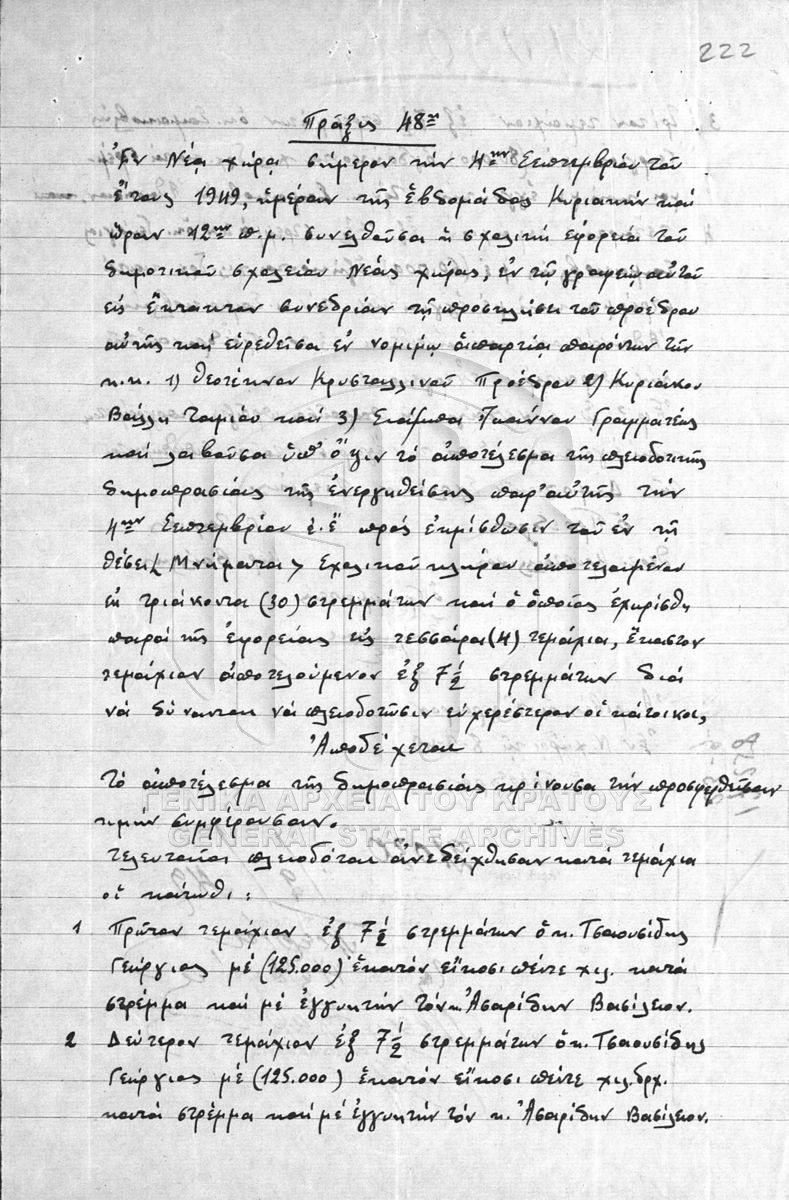 222
Πράξις 48η
Ἐν Νέᾳ χώρᾳ σήμερον τήν 4ην Σεπτεμβρίου τοῦ
ἔτους 1949, ἡμέραν τῆς ἑβδομάδος Κυριακήν καί
ὥραν 12ην π.μ. συνελθοῦσα ἡ σχολική εφορεία τοῦ
δημοτικοῦ σχολείου Νέας χώρας, ἐν τῷ γραφείῳ αὐτοῦ
εἰς ἔκτακτον συνεδρίαν τῇ προσκλήσει τοῦ προέδρου
αὐτῆς καί εὑρεθεῖσα ἐν νομίμῳ ἀπαρτίᾳ παρόντων τῶν
κ.κ. 1) Θεοτέκνου Κρυσταλλινοῦ Προέδρου 2) Κυριάκου
Βαΐλη Ταμίου καί 3) Ἰωάννου Γραμματέως
καί λαβοῦσα ὑπ' ὄψιν τό ἀποτέλεσμα τῆς πλειοδοτικῆς
δημοπρασίας τῆς ἐνεργηθείσης παρ' αὐτῆς τήν
4ην Σεπτεμβρίου ἐ.ἔ πρός ἐκμίσθωσιν τοῦ ἐν τῇ
θέσει < Μνήματα > Σχολικοῦ κλήρου ἀποτελουμένου
ἐκ τριάκοντα (30) στρεμμάτων καί ὁ ὁποῖος ἐχωρίσθη
παρά τῆς ἐφορείας εἰς τεσσάρα (4) τεμάχια, ἕκαστον
τεμάχιον ἀποτελούμενον ἐξ 7½ στρεμμάτων διά
νά δύνανται νά πλειοδοτῶσιν εὐχερέστερον οἱ κάτοικοι,
Ἀποδέχεται
τό ἀποτέλεσμα τῆς δημοπρασίας κρίνουσα τήν προσφερθεῖσαν
τιμήν συμφέρουσαν.
ΓΕΝΙΚΑ ΑΡΧΕΙΑ ΤΟΥ ΚΡΑΤΟΥΣ
GENERAL STATE ARCHIVES
τελευταῖοι πλειοδόται ἀνεδείχθησαν κατά τεμάχια
οἱ κάτωθι:
1 Πρῶτον τεμάχιον ἐξ 7½ στρεμμάτων ὁ κ. Τσαουσίδης
Γεώργιος μέ (125.000) ἑκατόν εἴκοσι πέντε χιλ. κατά
στρέμμα καί μέ ἐγγυητήν τόν κ. Ἀσαρίδην Βασίλειον.
2 Δεύτερον τεμάχιον ἐξ 7½ στρεμμάτων ὁ κ. Τσαουσίδης
Γεώργιος μέ (125.000) ἑκατόν εἴκοσι πέντε χιλ. δρχ.
κατά στρέμμα καί μέ ἐγγυητήν τόν κ. Ἀσαρίδην Βασίλειον.